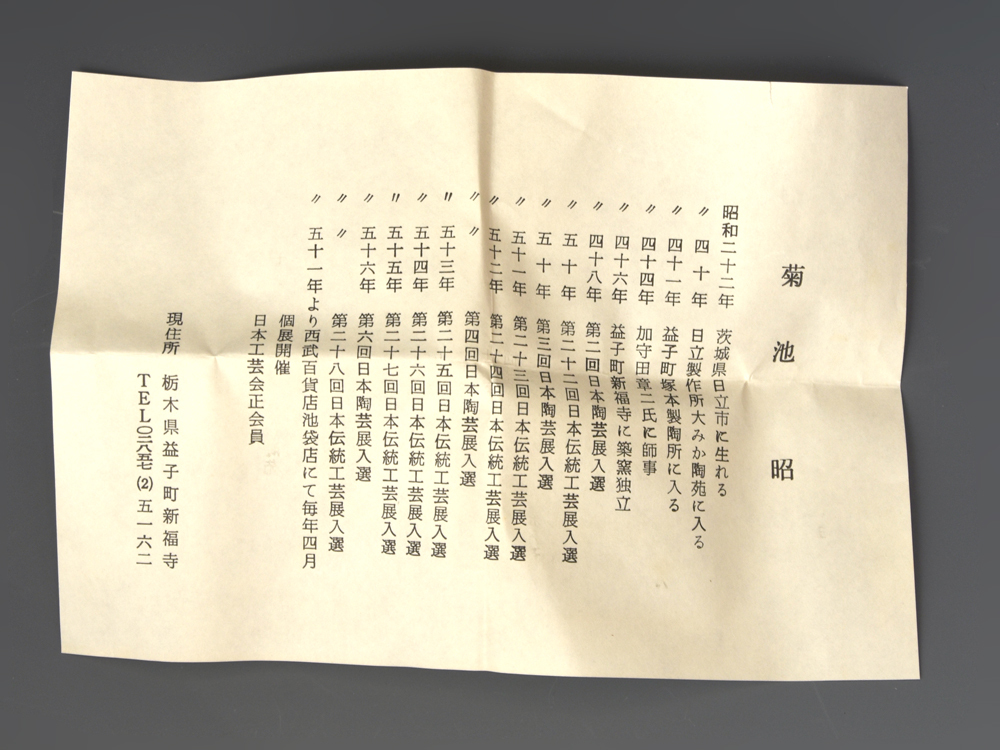 菊池 昭
昭和二十二年 茨城県日立市に生れる
〃 四十年 日立製作所大みか陶苑に入る
〃 四十一年 益子町塚本製陶所に入る
〃 四十四年 加守田章二氏に師事
〃 四十六年 益子町新福寺に築窯独立
〃 四十八年 第二回日本陶芸展入選
〃 五十年 第二十二回日本伝統工芸展入選
〃 五十年 第三回日本陶芸展入選
〃 五十一年 第二十三回日本伝統工芸展入選
〃 五十二年 第二十四回日本伝統工芸展入選
〃 〃 第四回日本陶芸展入選
〃 五十三年 第二十五回日本伝統工芸展入選
〃 五十四年 第二十六回日本伝統工芸展入選
〃 五十五年 第二十七回日本伝統工芸展入選
〃 五十六年 第六回日本陶芸展入選
〃 〃 第二十八回日本伝統工芸展入選
〃 五十一年より西武百貨店池袋店にて毎年四月
個展開催
日本工芸会正会員
現住所 栃木県益子町新福寺
TEL〇二八五七(2)五一六二